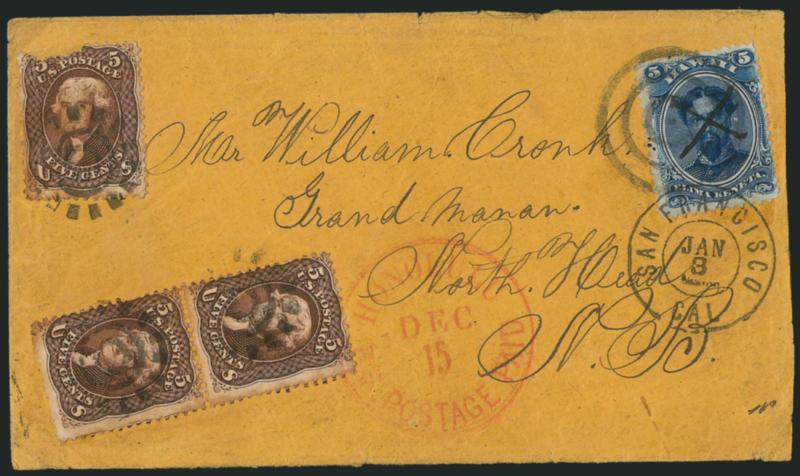 5 5
U.S. POSTAGE
U S
FIVE CENTS
5 5
HAWAII
ELIMA KENETA
Mr William. Cronk.
Grand Manan.
North. Head
N. B.
SAN FRANCISCO
JAN
8
CAL
HONOLULU
DEC
15
U.S. POSTAGE PAID
5 5
U.S. POSTAGE
U S
FIVE CENTS
5 5
U.S. POSTAGE
U S
FIVE CENTS